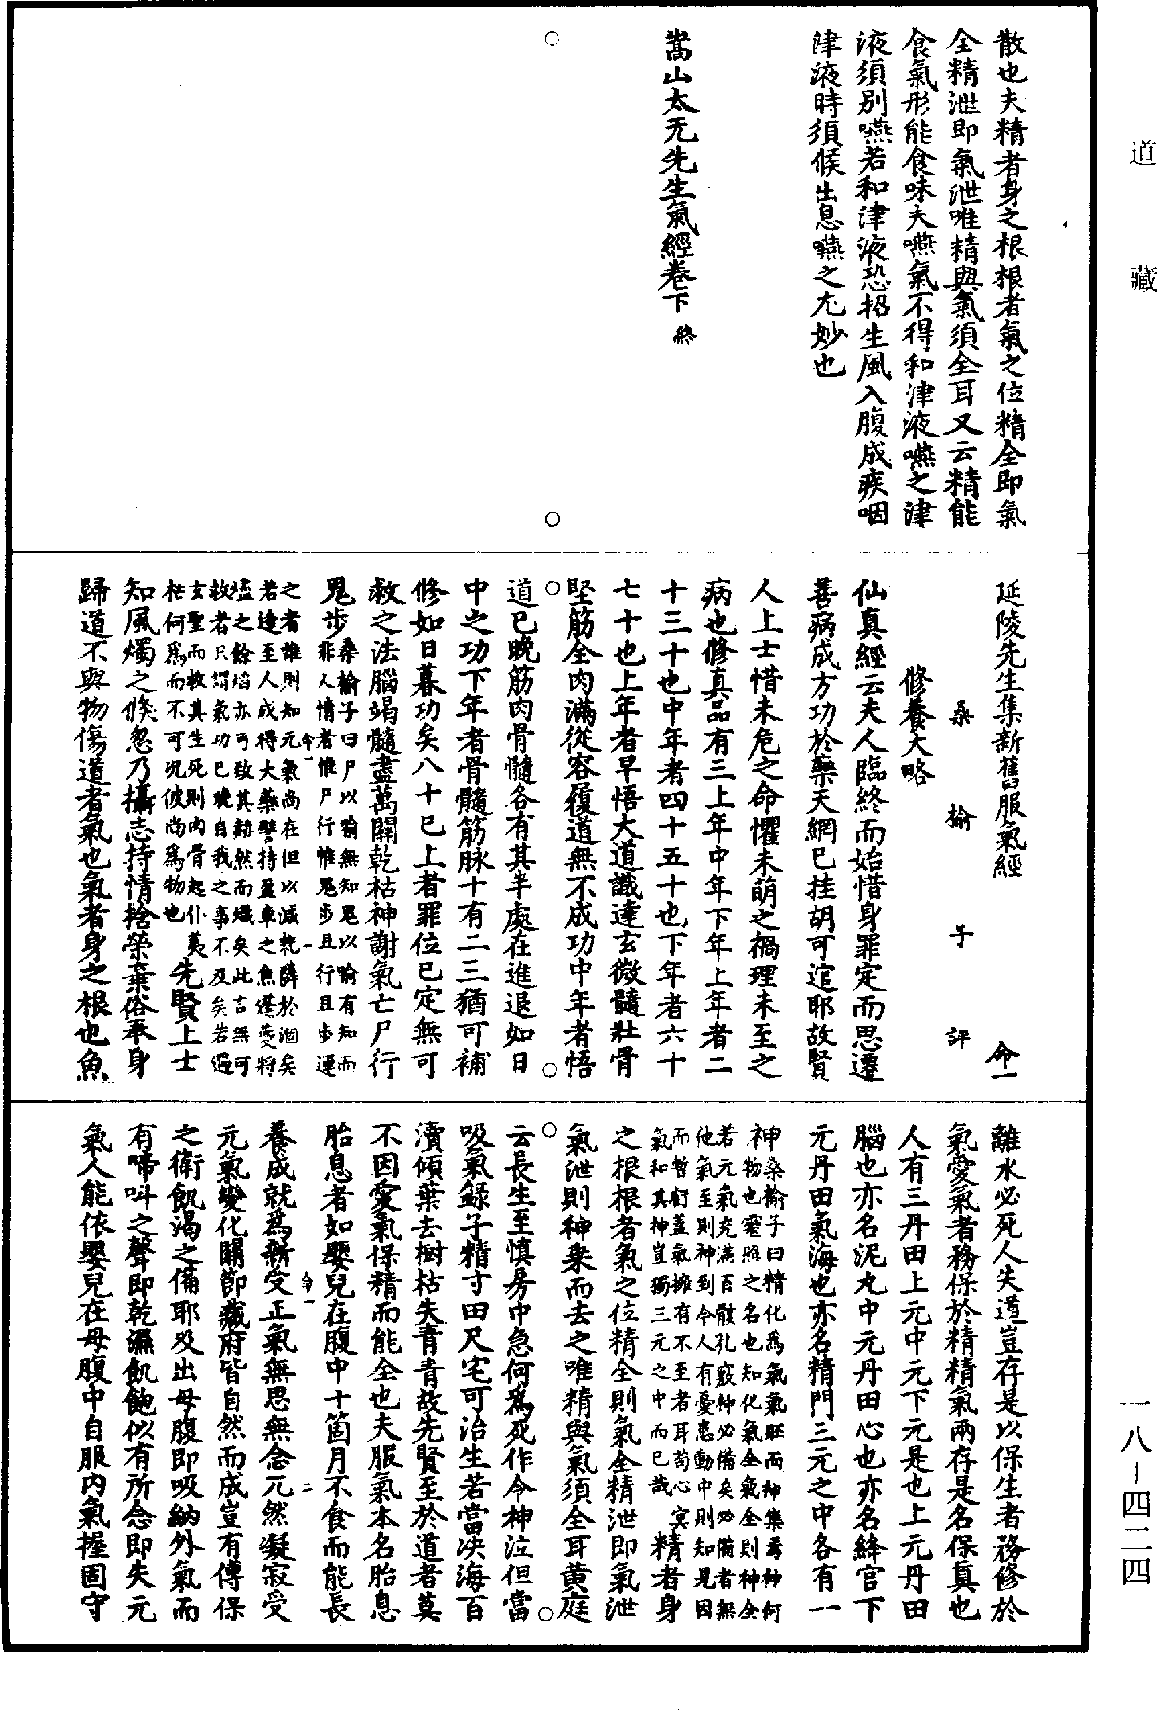 道藏
散也夫精者身之根根者氣之位精全即氣
全精泄即氣泄唯精與氣須全耳又云精能
食氣形能食味夫嚥氣不得和津液嚥之津
液須別嚥若和津液恐招生風入腹成疾咽
津液時須候出息嚥之尤妙也
嵩山太无先生氣經卷下 終
延陵先生集新舊服氣經 命一
桑榆子評
修養大略
仙真經云夫人臨終而始惜身罪定而思遷
善病成方功於藥天網已挂胡可逭耶故賢
人上士惜未危之命懼未萌之禍理未至之
病也修真品有三上年中年下年上年者二
十三十也中年者四十五十也下年者六十
七十也上年者早悟大道識達玄微髓壯骨
堅筋全肉滿從容履道無不成功中年者悟
道已晚筋肉骨髓各有其半處在進退如日
中之功下年者骨髓筋脉十有二三猶可補
修如日暮功矣八十已上者罪位已定無可
救之法腦竭髓盡萬關乾枯神謝氣亡尸行
鬼步桑榆子曰尸以喻無知鬼以喻有知而
非人情者惟尸行惟鬼步且行且步運
之者誰則知元氣尚在但以滅耗薜於涸矣
若逢至人或得大藥譬持盈車之魚遷灰將
燼之餘焰亦可致其勳然而熾矣此言無可
救者只謂氣功已晚自我之事不及矣若遇
玄聖而救其生死則肉骨起仆夷
枯何為而不可况彼尚為物也 先賢上士
知風燭之倏忽乃攝志持情捨榮棄俗奉身
歸道不與物傷道者氣也氣者身之根也魚
離水必死人失道豈存是以保生者務修於
氣愛氣者務保於精精氣兩存是名保真也
人有三丹田上元中元下元是也上元丹田
腦也亦名泥丸中元丹田心也亦名絳宮下
元丹田氣海也亦名精門三元之中各有一
神桑榆子曰精化為氣氣旺而神集焉神何
物也靈照之名也知化氣全氣全則神全
若元氣充滿百骸孔竅神必備矣必備者無
他氣至則神到今人有憂恚動中則知見因
而暫釘蓋氣擁有不至者耳苟心冥
氣和其神豈獨三元之中而已哉 精者身
之根根者氣之位精全則氣全精泄即氣泄
氣泄則神乘而去之唯精與氣須全耳黃庭
云長生至慎房中急何為死作令神泣但當
吸氣錄子精寸田尺宅可治生若當决海百
瀆傾葉去樹枯失青青故先賢至於道者莫
不因愛氣保精而能全也夫服氣本名胎息
胎息者如嬰兒在腹中十箇月不食而能長
養成就為新受正氣無思無念兀然凝寂受
元氣變化關節臟府皆自然而成豈有傅保
之衛飢渴之備耶及出母腹即吸納外氣而
有啼叫之聲即乾濕飢飽似有所念即失元
氣人能依嬰兒在母腹中自服內氣握固守
一八-四二四